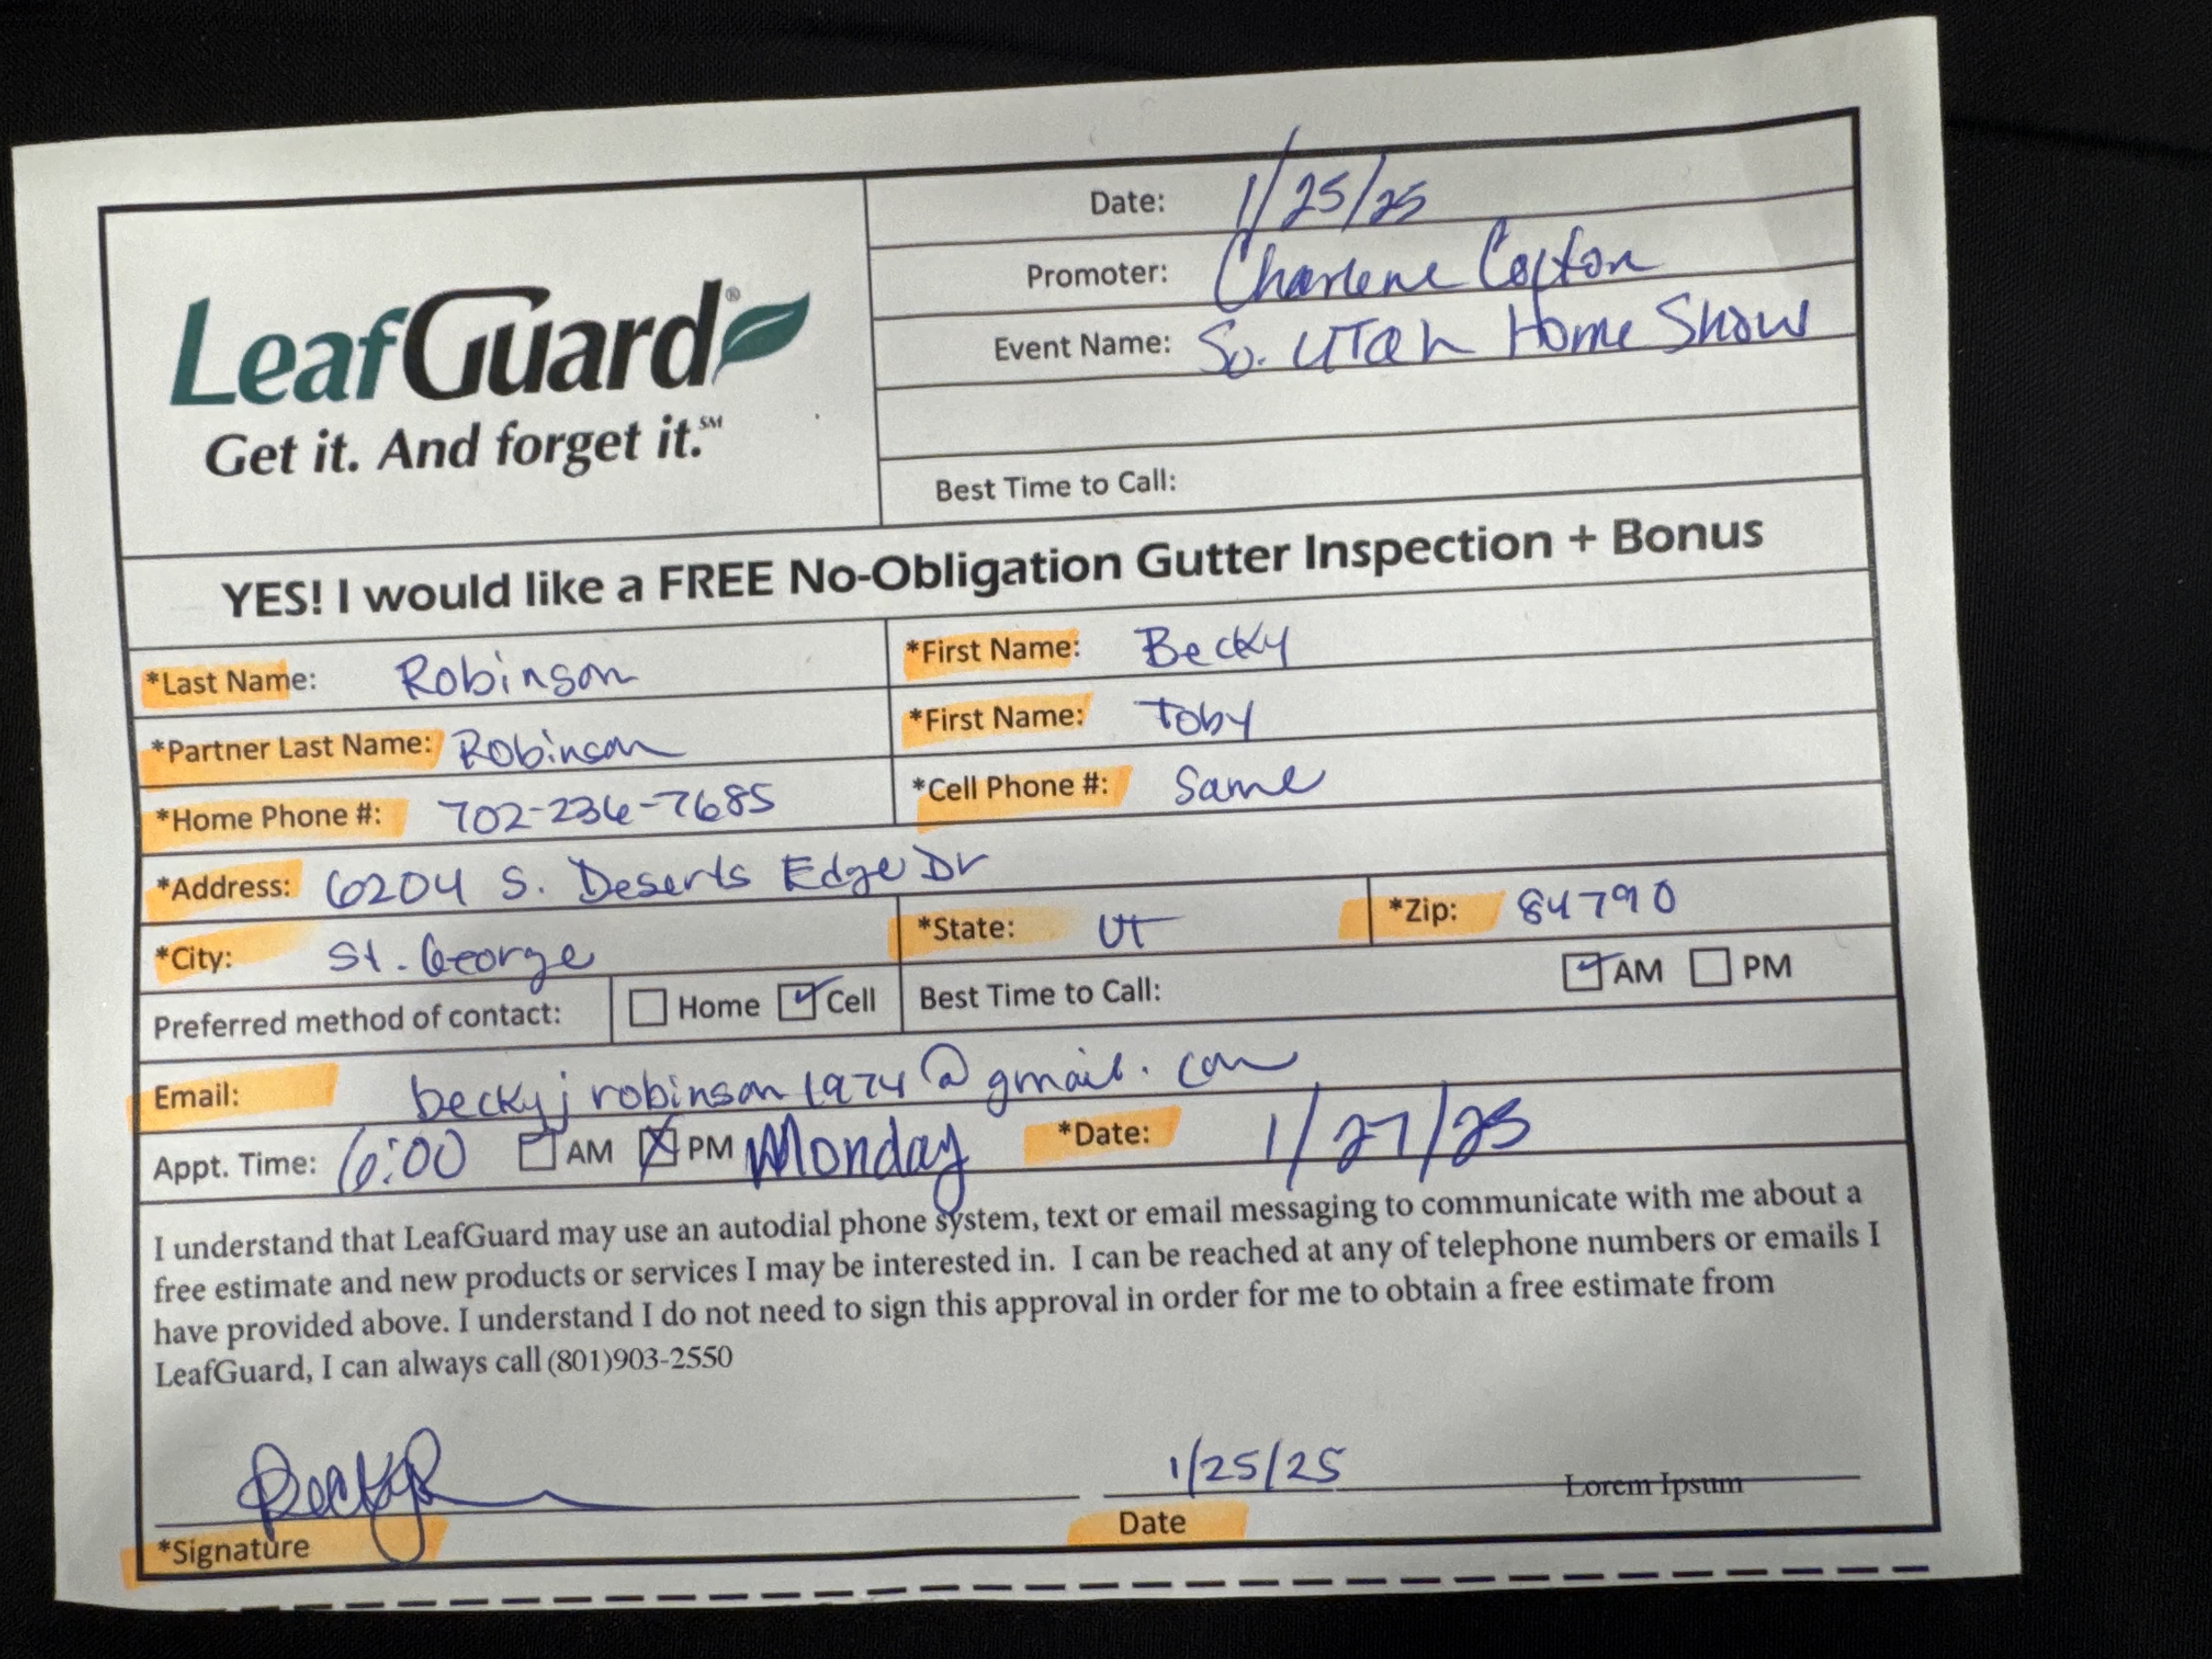 LeafGuard®
Get it. And forget it.℠
Date: 1/25/25
Promoter: Charlene Caxton
Event Name: So. UTah Home Show
Best Time to Call:
YES! I would like a FREE No-Obligation Gutter Inspection + Bonus
*Last Name: Robinson *First Name: Becky
*Partner Last Name: Robinson *First Name: Toby
*Home Phone #: 702-236-7685 *Cell Phone #: Same
*Address: 6204 S. Deserts Edge Dr
*City: St. George *State: UT *Zip: 84790
Preferred method of contact: Home Cell Best Time to Call: AM PM
Email: beckyjrobinson1974@gmail.com
Appt. Time: 6:00 AM PM Monday *Date: 1/27/25
I understand that LeafGuard may use an autodial phone system, text or email messaging to communicate with me about a
free estimate and new products or services I may be interested in. I can be reached at any of telephone numbers or emails I
have provided above. I understand I do not need to sign this approval in order for me to obtain a free estimate from
LeafGuard, I can always call (801)903-2550
1/25/25 Lorem Ipsum
*Signature Date